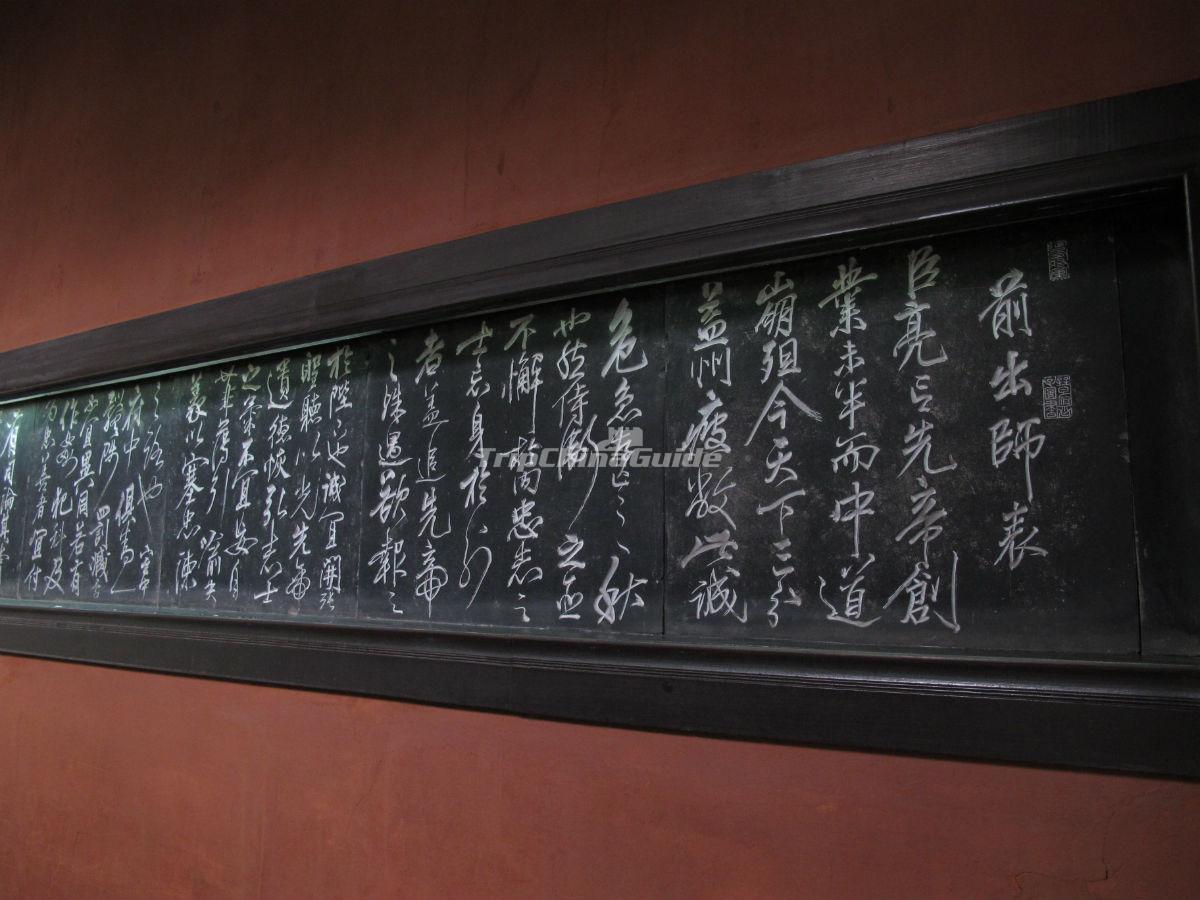 前出師表
臣亮言先帝創
業未半而中道
崩殂今天下三分
益州疲敝此誠
危急存亡之秋
也然侍衛之臣
不懈於內忠志之
士忘身於外
者蓋追先帝
之殊遇欲報之
於陛下也誠宜開張
聖聽以光先帝
遺德恢弘志士
之氣不宜妄自
菲薄引喻失
義以塞忠諫
之路也宮中
府中俱為一
體陟罰臧否
不宜異同若有
作姦犯科及
為忠善者宜付
有司論其刑
TripChinaGuide